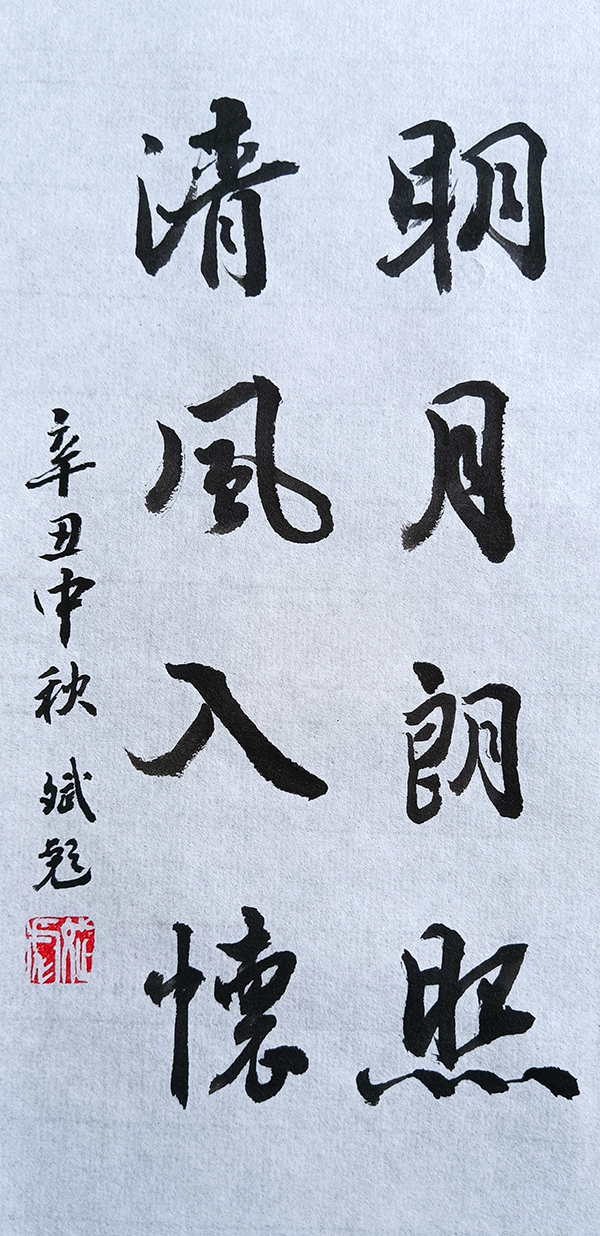 明月朗照
清風入懷
辛丑中秋 斌彪